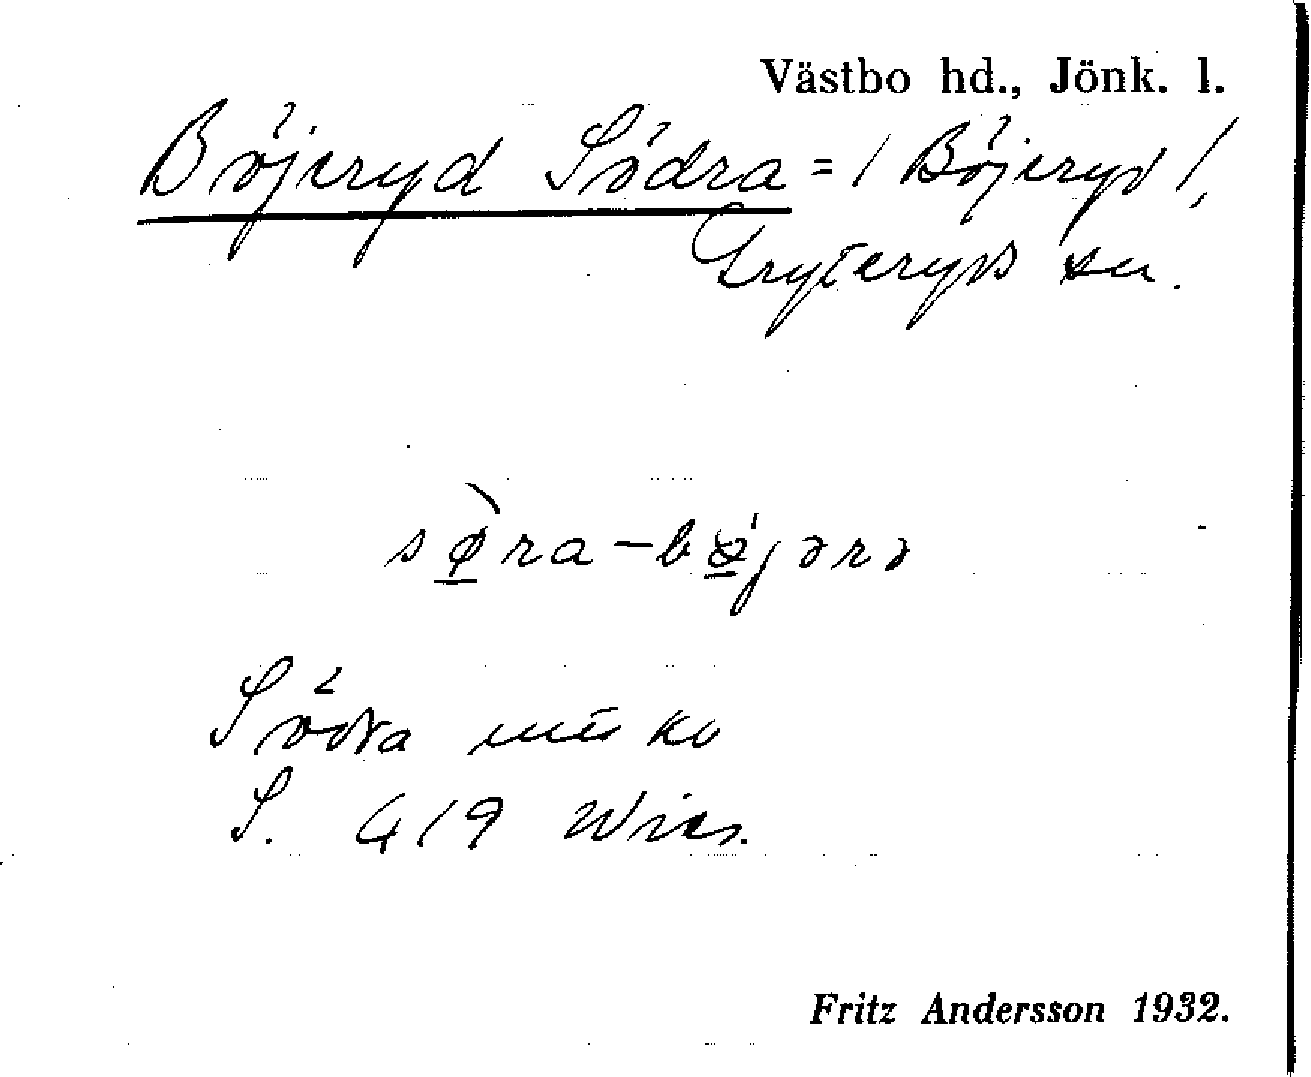 Västbo hd., Jönk. l.
Böjeryd Södra = / Böjeryd /,
Gryteryds sn.
sø̀ra – bǿjərə
Södra
S. 419 Wies.
Fritz Andersson 1932.